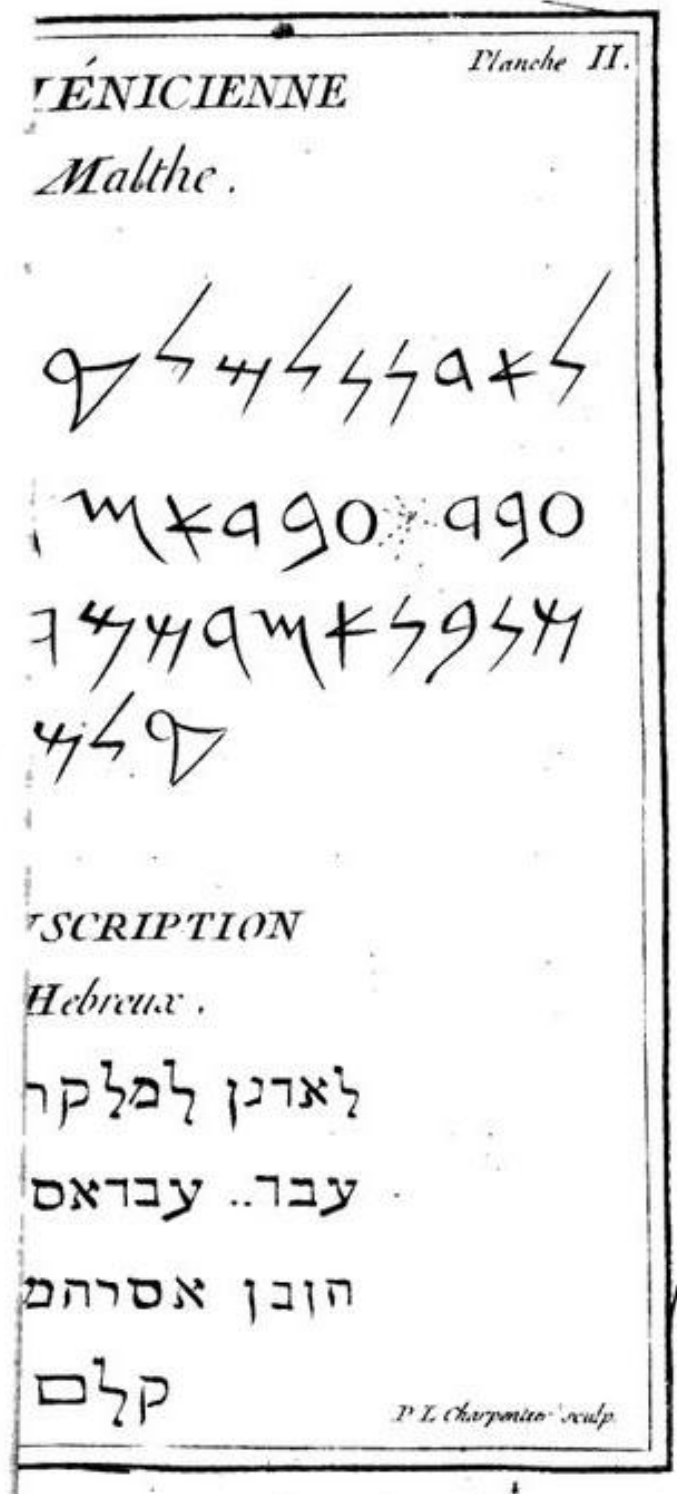 Planche II.
ÉNICIENNE
Malthe.
𐤋𐤀𐤃𐤍𐤍𐤋𐤌𐤋𐤒
𐤏𐤁𐤃 𐤏𐤁𐤃𐤀𐤎
𐤔𐤍𐤁𐤍𐤀𐤎𐤓𐤔𐤌
𐤒𐤋𐤌
SCRIPTION
Hebreux.
לאדנן למלקר
עבד.. עבדאס
הןבן אסרהמ
קלם
P. L. Charpentier sculp.